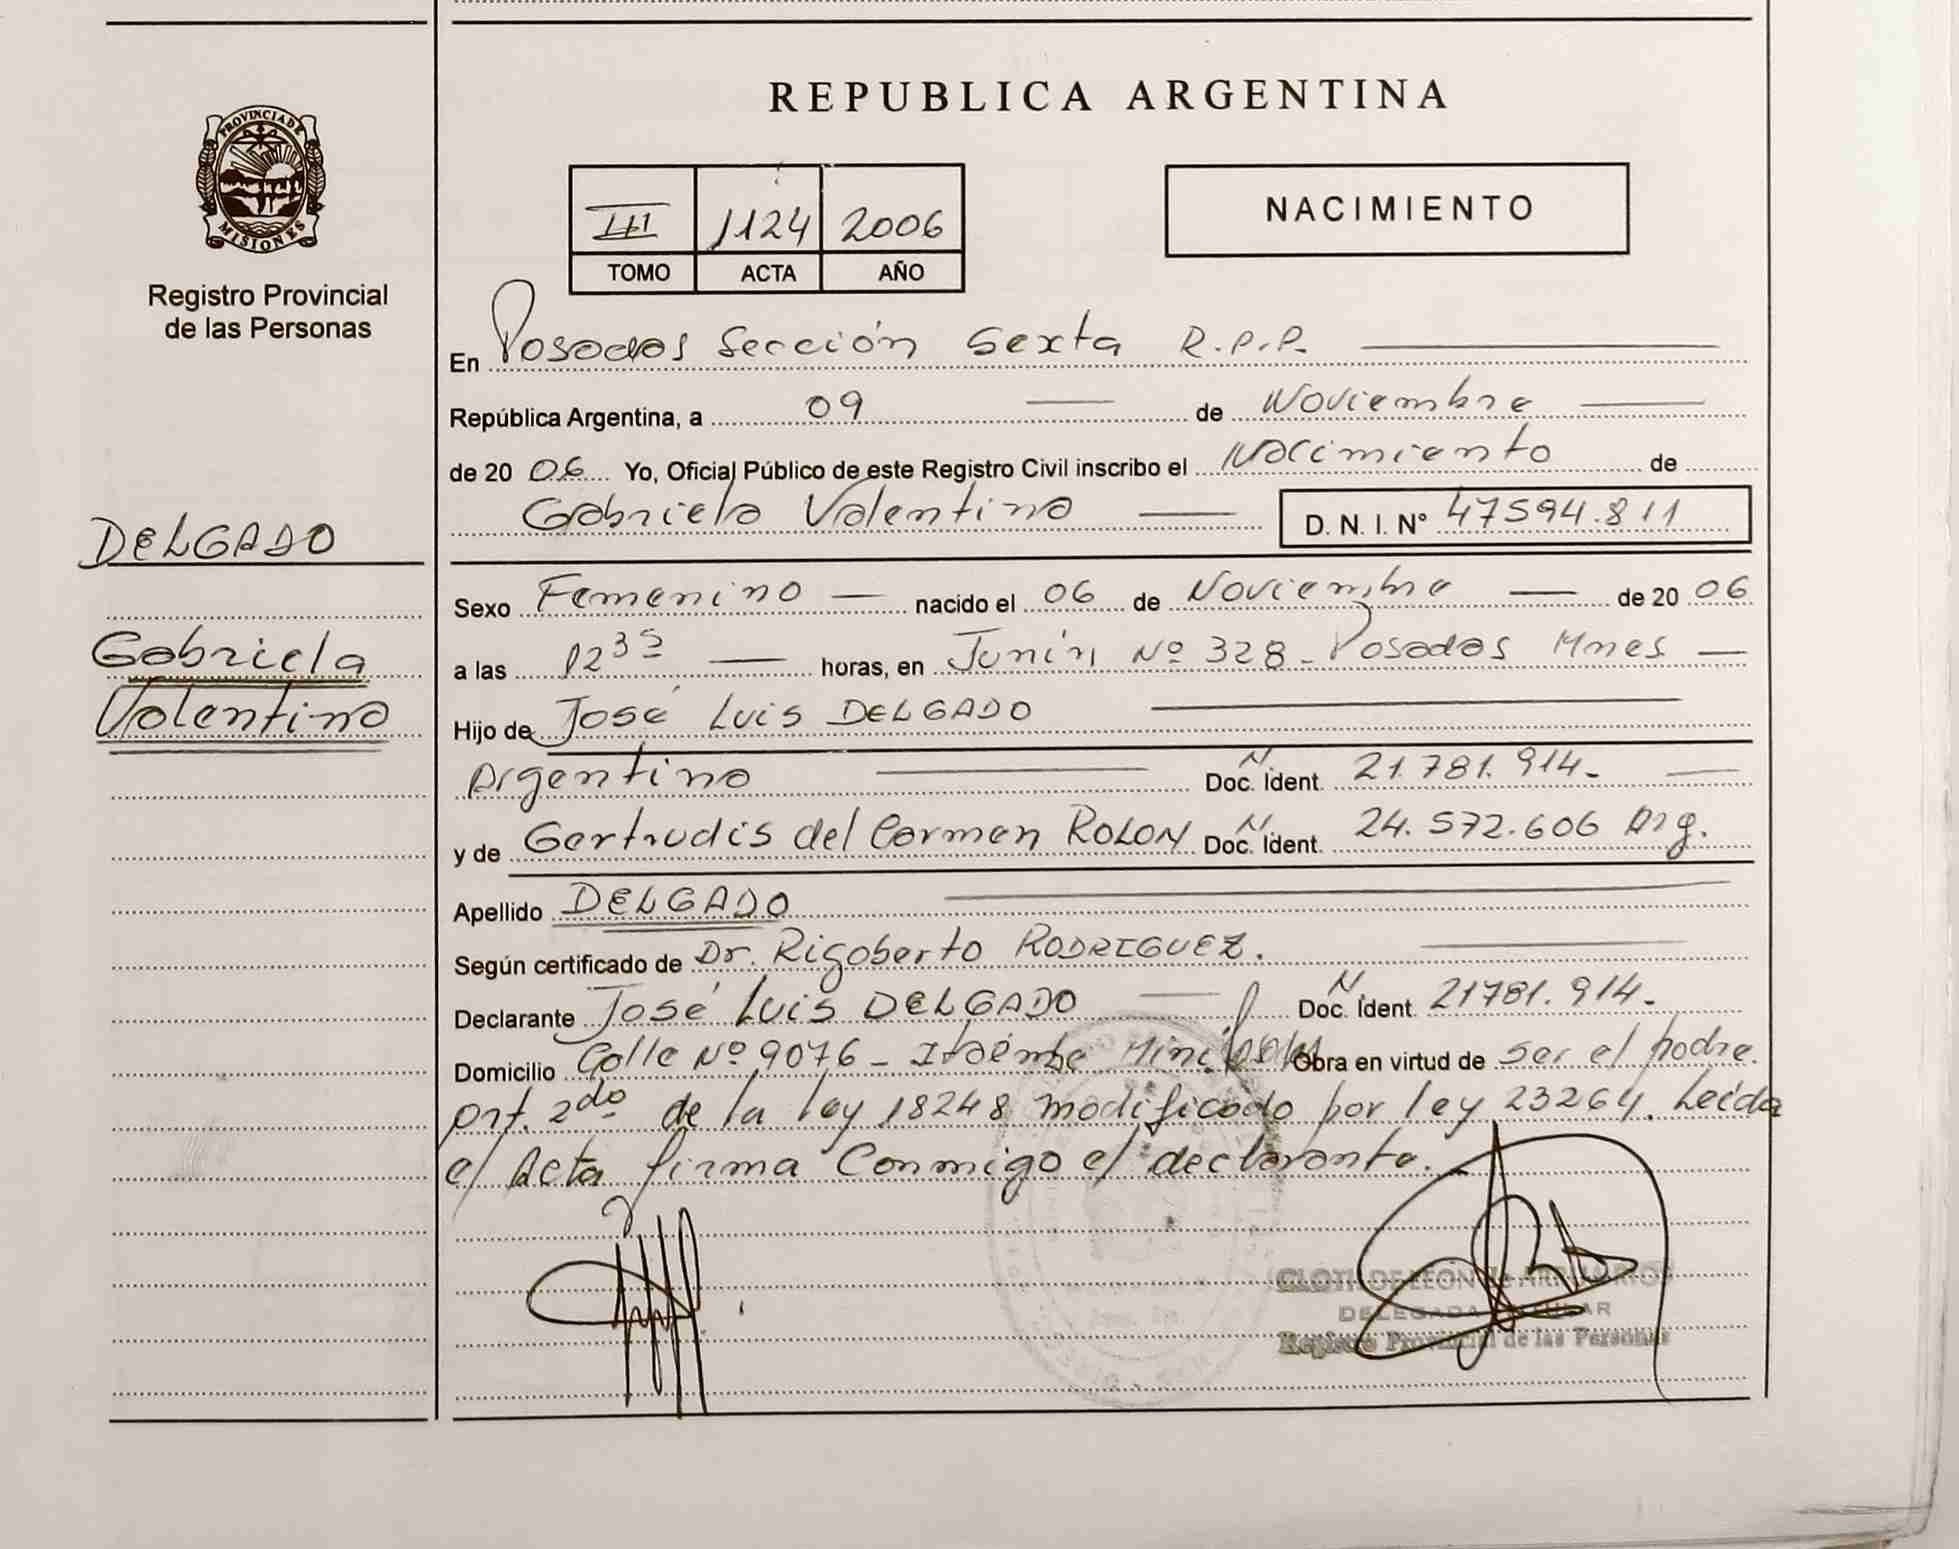 REPUBLICA ARGENTINA
PROVINCIA DE
MISIONES
Registro Provincial
de las Personas
III 1124 2006
TOMO ACTA AÑO
NACIMIENTO
En Posadas Sección Sexta R.P.P.
República Argentina, a 09 de Noviembre
de 20 06 Yo, Oficial Público de este Registro Civil inscribo el Nacimiento de
Gabriela Valentina D. N. I. N° 47594.811
DELGADO
Gabriela
Valentina
Sexo Femenino nacido el 06 de Noviembre de 20 06
a las 12 35 horas, en Junín Nº 328 - Posadas Mnes
Hijo de José Luis DELGADO
Argentino N Doc. Ident. 21.781.914.-
y de Gertrudis del Carmen ROLON N Doc. Ident. 24.572.606 Arg.
Apellido DELGADO
Según certificado de Dr. Rigoberto RODRIGUEZ.
Declarante José Luis DELGADO N Doc. Ident. 21781.914.-
Domicilio Calle Nº 9076 - Itaémbe Miní Obra en virtud de ser el padre.
Art. 2do de la ley 18248 modificado por ley 23264. Leída
el Acta firma Conmigo el declarante.-
DELEGADA TITULAR
Registro Provincial de las Personas